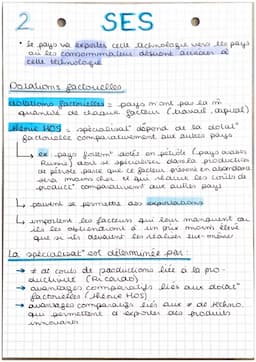 2 SES
• le pays va exporter cette technologie vers les pays
où les consommateurs désirent accéder à
cette technologie
Dotations factorielles
dotations factorielles = pays n'ont pas la m̂
quantité de chaque facteur (travail, capital)
théorie HOS = spécialisat° dépend de la dotat°
factorielle comparativement aux autres pays
↳ ex: pays fortemt dotés en pétrole (pays arabes
Russie) dont se spécialiser dans la production
de pétrole parce que ce facteur présent en abondance
sera moins cher et qui réduit les coûts de
product° comparativemt aux autres pays
↳ peuvent se permettre des exportations
↳ importent les facteurs qui leur manquent car
ils les obtiendront à un prix moins élevé
que si ils devaient les réaliser eux-mêmes
La spécialisat° est déterminée par:
→ ≠ de coûts de productions liée à la pro-
ductivité (Ricardo)
→ avantages comparatifs liés aux dotat°
factorielles (théorie HOS)
→ avantages comparatifs liés aux ≠ de techno.
qui permettent d'exporter des produits
innovants